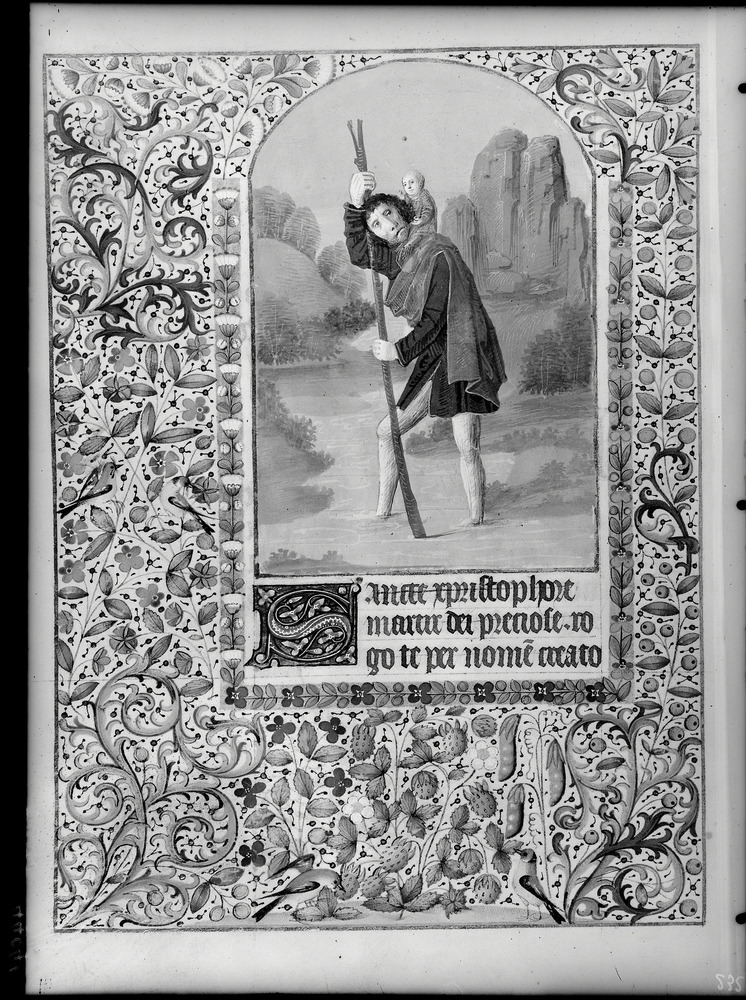 Sancte xpristophore
martir dei preciose · ro
go te per nomē creato
232